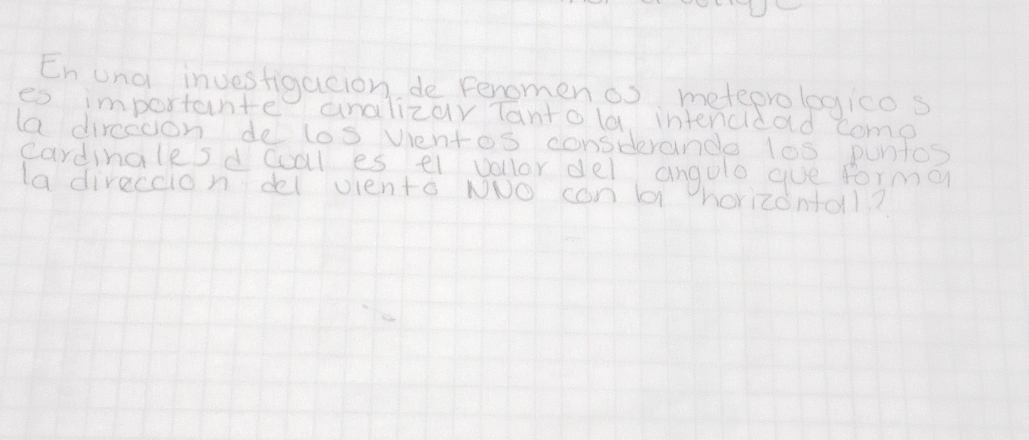 En una investigacion de Fenomenos meteorologicos
es importante analizar Tanto la intencidad como
la direccion de los vientos considerando los puntos
cardinales ¿ Cual es el vallor del angulo que forma
la direccion del viento NNO con la horizontal?